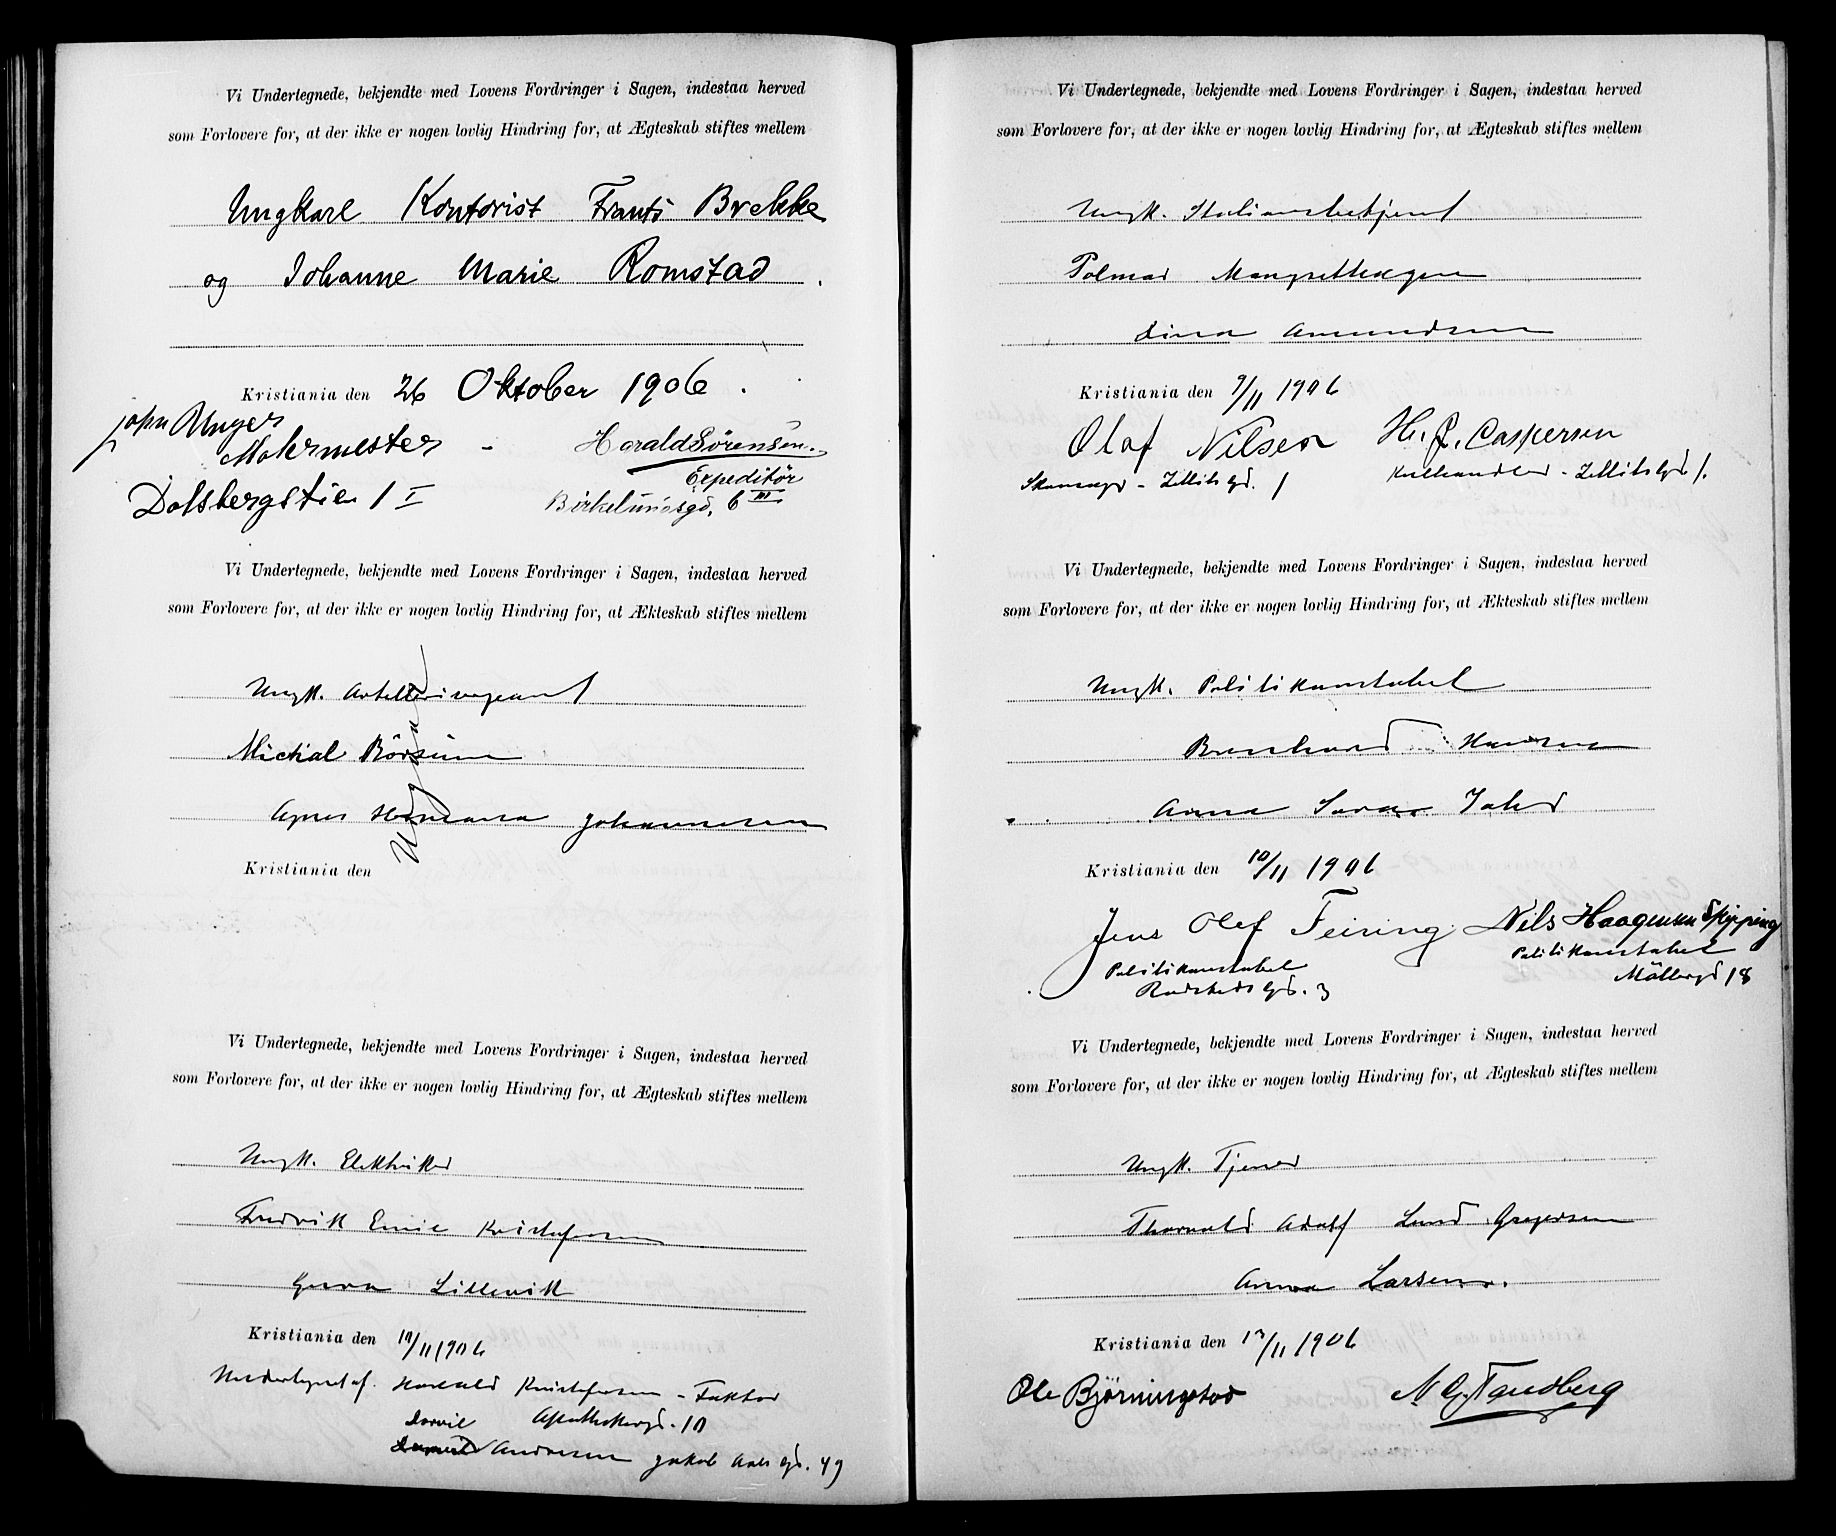 Vi Undertegnede, bekjendte med Lovens Fordringer i Sagen, indestaa herved
som Forlovere for, at der ikke er nogen lovlig Hindring for, at Ægteskab stiftes mellem
Ungkarl Kontorist Frants Brekke
og Johanne Marie Romstad.
Kristiania den 26 Oktober 1906.
John Unger
Malermester - Harald Sörensen.
Expeditör
Dalsbergstien 1 I Birkelundsgd. 6 III
Vi Undertegnede, bekjendte med Lovens Fordringer i Sagen, indestaa herved
som Forlovere for, at der ikke er nogen lovlig Hindring for, at Ækteskab stiftes mellem
Ungk. Artillerisergeant
Michal Börsum
Agnes Johannesen
Kristiania den
Vi Undertegnede, bekjendte med Lovens Fordringer i Sagen, indestaa herved
som Forlovere for, at der ikke er nogen lovlig Hindring for, at Ægteskab stiftes mellem
Ungk. Elektriker
Fredrik Emil Kristofersen
Lillevik
Kristiania den 10/11 1906
Undertegnet af. Harald Kristofersen - Faktor
Apothekergd. 10
Andresen Jakob Aals Gd. 49
Vi Undertegnede, bekjendte med Lovens Fordringer i Sagen, indestaa herved
som Forlovere for, at der ikke er nogen lovlig Hindring for, at Ægteskab stiftes mellem
Ungk. Stationsbetjent
Lina Amundsen
Kristiania den 9/11 1906
Olaf Nilsen H. J. Caspersen
Skomager - Zetlitsgd. 1 Kulhandler - Zetlitsgd 1.
Vi Undertegnede, bekjendte med Lovens Fordringer i Sagen, indestaa herved
som Forlovere for, at der ikke er nogen lovlig Hindring for, at Ækteskab stiftes mellem
Ungk. Politikonstabel
Bernhard Hansen
Anna
Kristiania den 10/11 1906
Jens Olef Feiring Nils Haagensen Skjeping
Politikonstabel Politikonstabel
Rudstedsgd. 3 Möllergd 18
Vi Undertegnede, bekjendte med Lovens Fordringer i Sagen, indestaa herved
som Forlovere for, at der ikke er nogen lovlig Hindring for, at Ægteskab stiftes mellem
Ungk. Tjener
Thorvald Adolf Lund Gregersen
Anna Larsen.
Kristiania den 13/11 1906
Ole Björningstad N. G. Tandberg